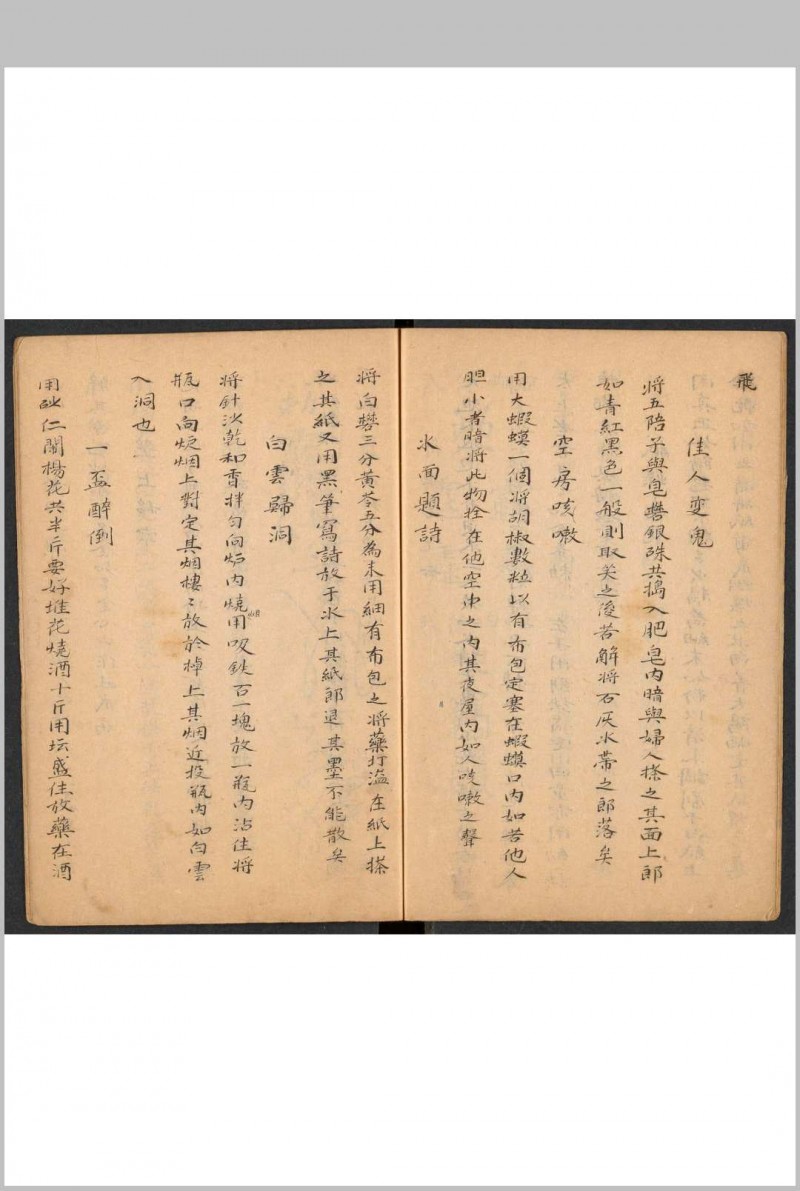 飛
佳人变鬼
将五陪子與皂礬銀硃共搗入肥皂内暗與婦人搽之其面上郎
如青紅黑色一般則取笑之後若觧将石灰水蒂之郎落矣
空房咳嗽
用大蝦蟆一個将胡椒数粒以有布包定塞在蝦蟆口内如若他人
胆小者暗将此物拴在他空床之内其夜屋内如人咳嗽之聲
水面題詩
将白礬三分黄芩五分為末用細有布包之将藥打溢在紙上搽
之其紙又用黑筆寫詩放于水上其紙郎退其墨不能散矣
白雲歸洞
将針沙乾和香拌匀向炉内燒用吸鉄石一塊放一瓶内沾住将
瓶口向炉烟上對定其烟樓〻放於棹上其烟近投瓶内如白雲
入洞也
一盃醉倒
用砂仁閙楊花共半斤要好堆花燒酒十斤用坛盛住放藥在酒